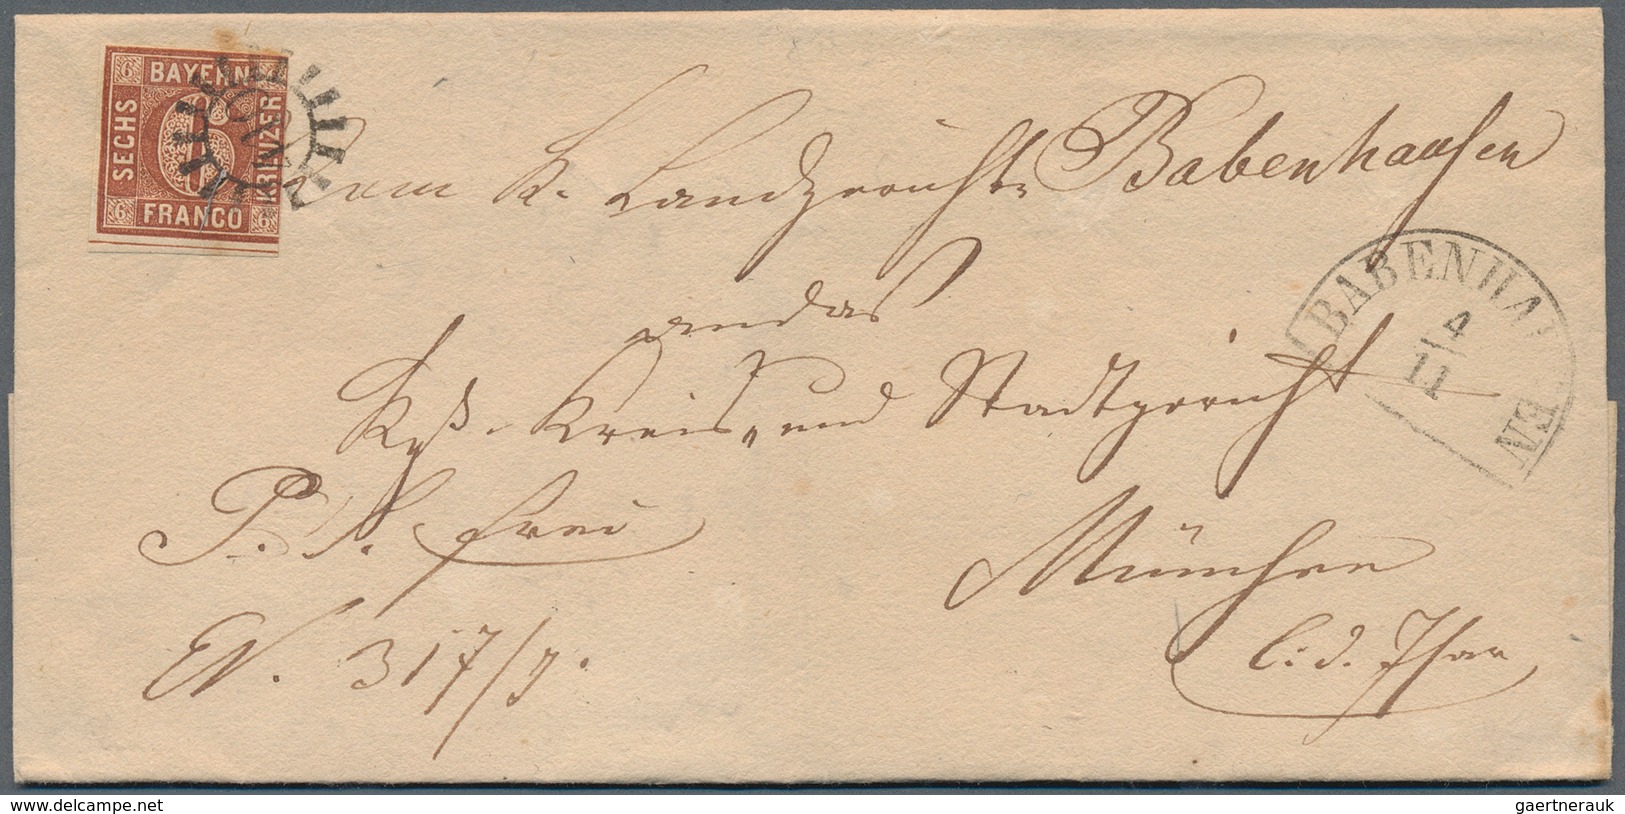 6 BAYERN 6
SECHS
KREUZER
6 FRANCO 6
Vom K. Landgerichte Babenhausen
an das
Kgß. Kreis- und Stadtgericht
München
l. d. Isar
P. S. frei
EN. 317/
BABENHAUSEN
4
11
delcampe.net
gaertnerauk